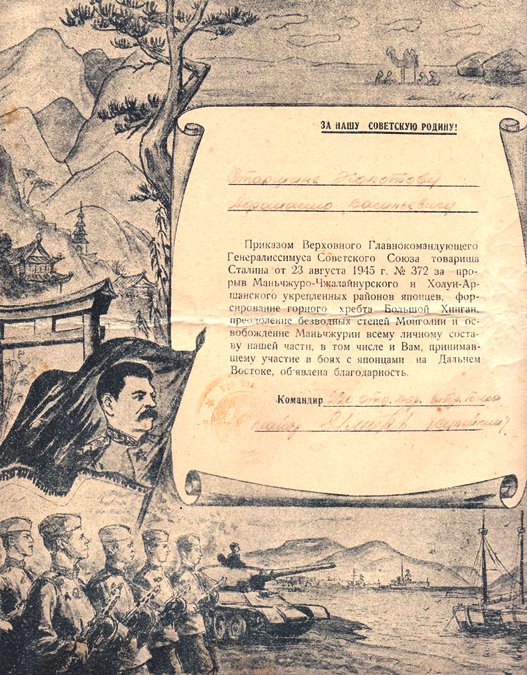 ЗА НАШУ СОВЕТСКУЮ РОДИНУ!
Старшине
Васильевичу
Приказом Верховного Главнокомандующего
Генералиссимуса Советского Союза товарища
Сталина от 23 августа 1945 г. № 372 за про-
рыв Маньчжуро-Чжалайнурского и Холун-Ар-
шанского укрепленных районов японцев, фор-
сирование горного хребта Большой Хинган,
преодоление безводных степей Монголии и ос-
вобождение Маньчжурии всему личному соста-
ву нашей части, в том числе и Вам, принимав-
шему участие в боях с японцами на Дальнем
Востоке, об'явлена благодарность.
Командир